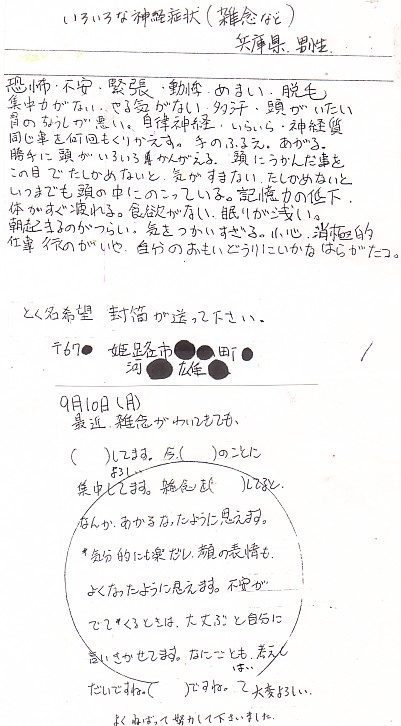 いろいろな神経症状(雑念など)
兵庫県.男性.
恐怖・不安・緊張・動悸・めまい・脱毛
集中力がない・やる気がない・多汗・頭がいたい
胃のちょうしが悪い。自律神経・いらいら・神経質
同じ事を何回もくりかえす。手のふるえ。あがる。
勝手に頭がいろいろ事かんがえる。頭にうかんだ事を
この目でたしかめないと、気がすまない、たしかめないと
いつまでも頭の中にのこっている。記憶力の低下.
体がすぐ疲れる。食欲がない、眠りが浅い。
朝起きるのがつらい。気をつかいすぎる。小心.消極的
仕事行のがいや、自分のおもいどうりにいかなはらがたつ。
とく名希望 封筒が送って下さい.
〒67 姫路市 町
河 雄
9月10日(月)
最近.雑念がわいてもても、
( )してます。今、( )のことに
よろしい
集中してます。雑念を( )してると、
なんか、あかるなったように思えます。
気分的にも楽だし.顔の表情も.
よくなったように思えます。不安が
でてくるときは、大丈ぶと自分に
言いきかせてます。なにごとも、考えし
はい
だいですね。( )ですね。て 大変よろしい.
よくねばって努力して下さいました.